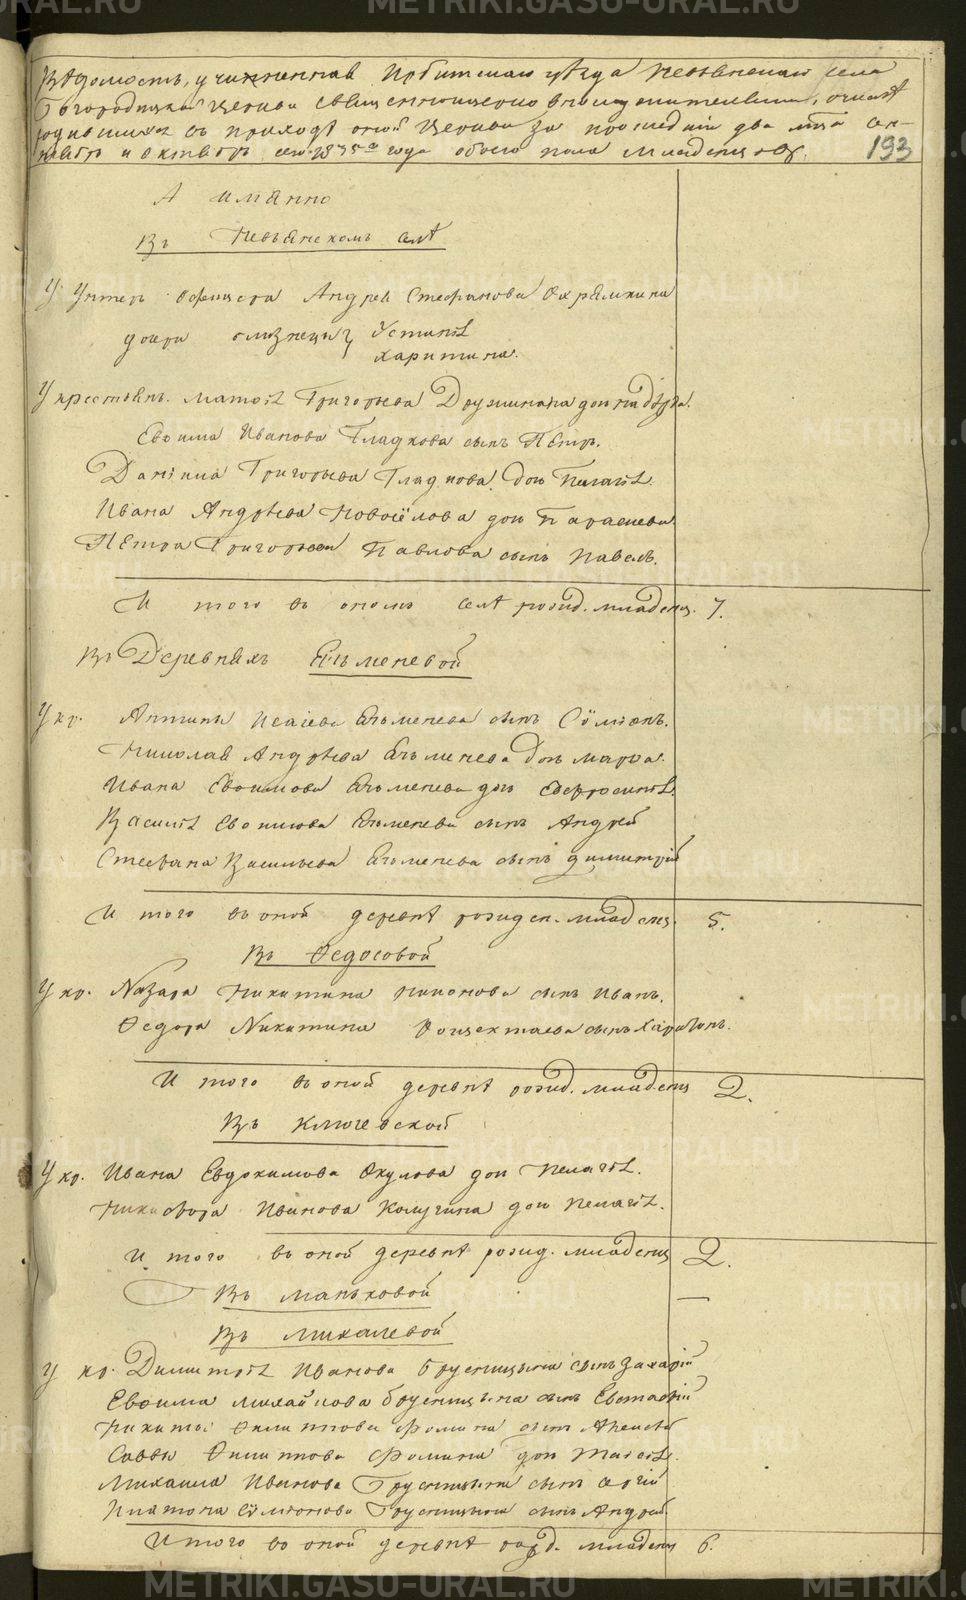 Вѣдомость, учиненная Ирбитскаго уѣзда Невьянскаго села
Богородицкой церкви священноцерковнослужителями, о числѣ
родившихся въ приходѣ оной церкви за последніи два м-ца сен-
тябрь и октябрь сего 1835го года обоего пола младенцовъ. 193
А имянно
Въ Невьянскомъ селѣ
У Унтеръ офицера Андрея Стефанова
дочери близнецы Устинія
Харитина.
У крестьян. Матвѣя Григорьева Дружинина дочь
Евѳима Иванова Гладкова сынъ Пётръ.
Даніила Григорьева Гладкова дочь Пелагія.
Ивана Андрѣева Новосёлова дочь Параскева
Пётра Григорьева Павлова сынъ Павелъ.
И того въ ономъ селѣ рожд. младенц. 7.
Въ Деревняхъ Ельменевой
У кр. Антипы Исаіева Ельменева сынъ Сѷмеонъ.
Николая Андрѣева Ельменева дочь Марѳа.
Ивана Евѳимова Ельменева дочь Евфросинія.
Василія Евѳимова Ельменева сынъ Андрей
Стефана Васильева Ельменева сынъ Димитрій
И того въ оной деревнѣ рожден. младенц. 5.
Въ Ѳедосовой
У кр. Назара Никитина сынъ Иванъ.
Ѳедора Никитина сынъ Харитонъ.
И того въ оной деревнѣ рожд. младенц 2.
Въ Ключевской
У кр. Ивана Евдокимова Окулова доч Пелагія.
Никифора Иванова Калугина доч Пелагія.
И того въ оной деревнѣ рожд. младенц 2.
Въ Маньковой —
Въ Михалевой
У кр. Димитрія Иванова Брусницына сынъ Захарій
Евѳима Михайлова Брусницына сынъ Евстафій
Никиты Филиппова Фомина сынъ Алексѣй
Саввы Филиппова Фомина доч Таисія.
Михаила Иванова Брусницына сынъ Сергій
Платона Сѷмеонова Брусницына сынъ Андрей.
И того въ оной деревнѣ рожд. младенц 6.
METRIKI.GASO-URAL.RU